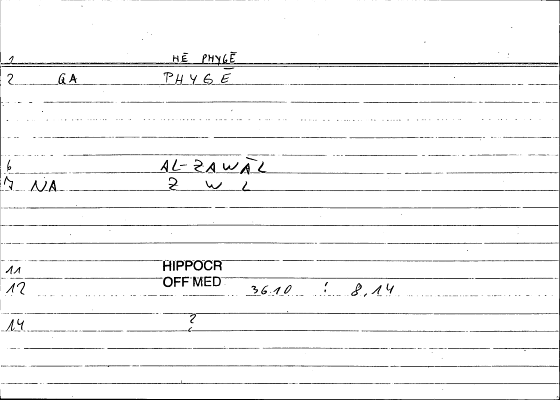 1 HĒ PHYGĒ
2 GA PHYGĒ
6 AL-ZAWĀL
7 NA Z W L
11 HIPPOCR
12 OFF MED 36.10 : 8,14
14 ?